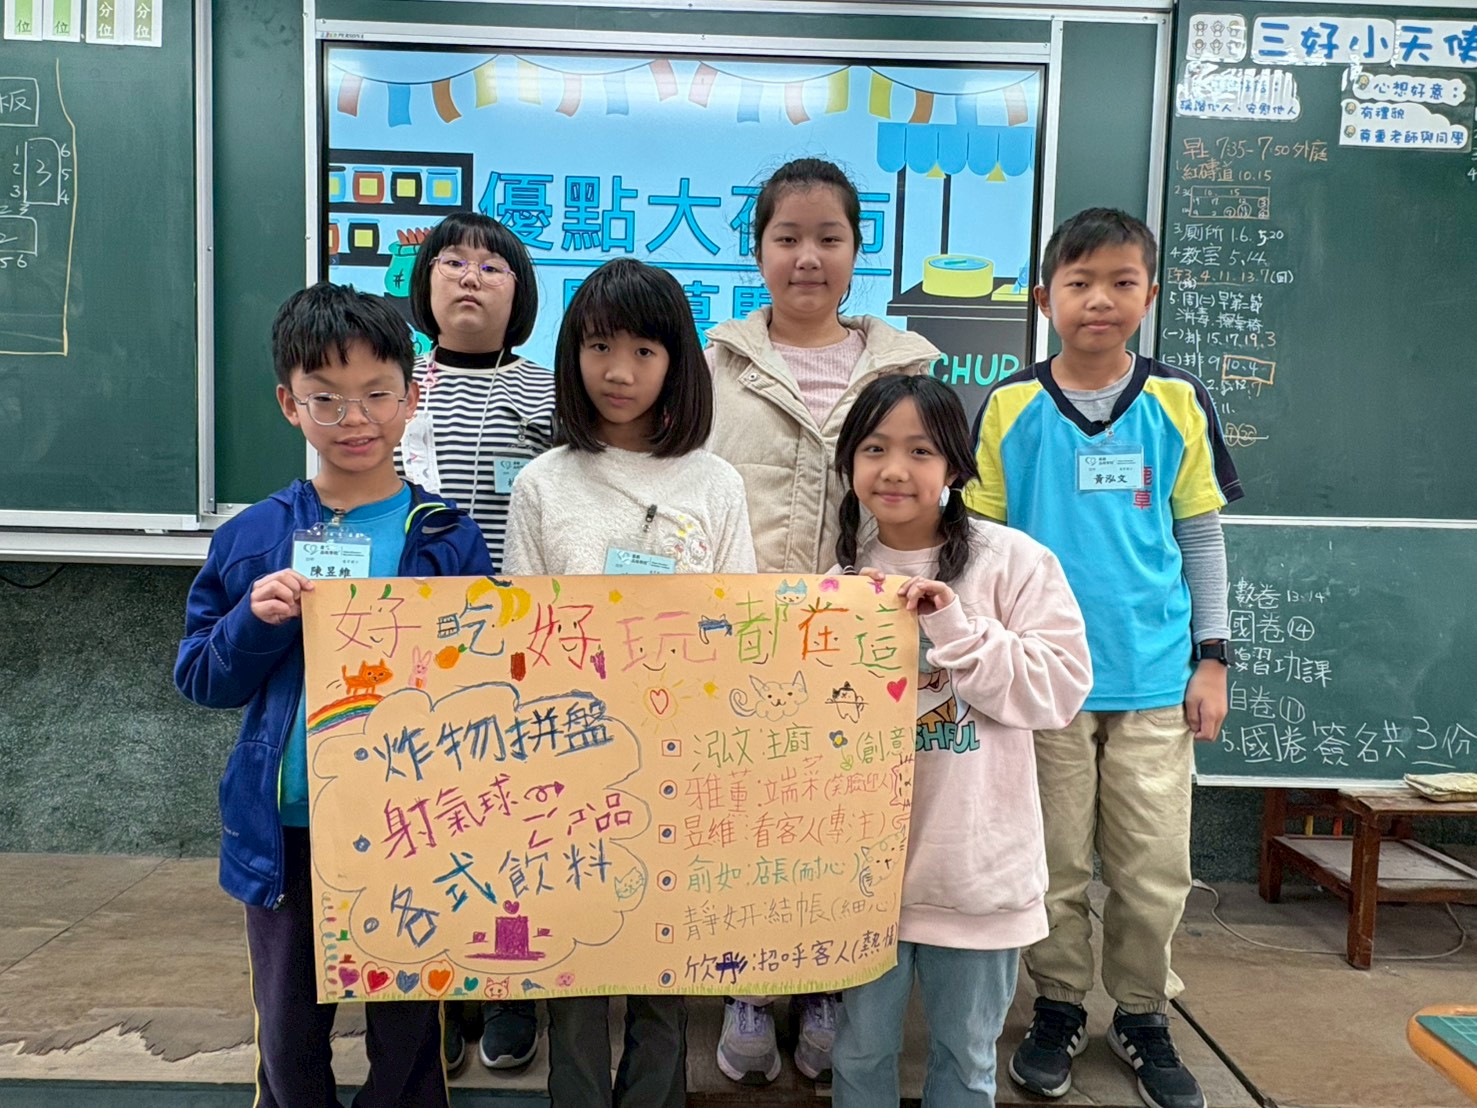 分位
分位
板
三好小天使
心想好意：
有禮貌
尊重老師與同學
早上 7:35-7:50外庭
1.紅磚道 10.15
3.廁所 1.6. 5.20
4.教室 5.14.
5.周(二)早第二節
(一)排 15.17.19.3
(二)排 9 10.4
優點大夜市
CHUR
陳昱維
黃泓文
好吃好玩都在這
炸物拼盤
射氣球→產品
各式飲料
泓文:主廚(創意
雅蓳:端菜(笑臉迎人)
昱維:看客人(專注)
俞如:店長(耐心)
靜妍:結帳(細心)
欣彤:招呼客人(熱情
SHFUL
數卷 13.14
國卷⑭
複習功課
自卷⑪
5.國卷簽名共3份